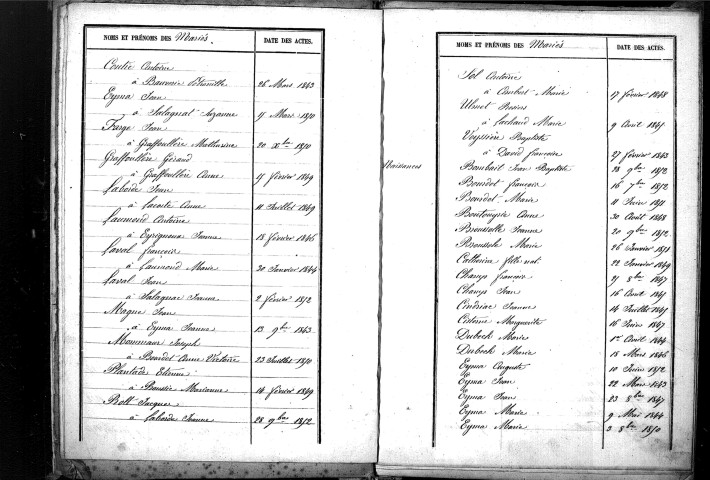 NOMS ET PRÉNOMS DES Mariés
DATE DES ACTES.
Coutre Antoine
à Bauvrie Pétronille 26 Mars 1843
Eyma Jean
à Salagnat Suzanne 9 Mars 1850
Farge Jean
à Graffoullère Mathurine 20 Xbre 1850
Graffoullère Géraud
à Graffoullère Anne 15 février 1849
Laborde Jean
à Lacoste Anne 11 Juillet 1849
Laumond Antoine
à Eyrignoux Jeanne 18 février 1846
Laval françois
à Laumond Marie 30 Janvier 1844
Laval Jean
à Salagnac Jeanne 2 février 1852
Magne Jean
à Eyma Jeanne 13 9bre 1843
Mommeau Joseph
à Bourdet Anne Victoire 23 Juillet 1850
Plantade Etienne
à Boussie Marianne 14 février 1849
Rott Jacques
à Laborde Jeanne 28 9bre 1852
NOMS ET PRÉNOMS DES Mariés
DATE DES ACTES.
Sol Antoine
à Combet Marie 17 février 1848
Ulmet
à Lachaud Marie 9 Avril 1845
Veyssière Baptiste
à David françoise 27 février 1843
Naissances
Bombail Jean Baptiste 28 9bre 1852
Bourdet françois 16 7bre 1852
Bourdet Marie 11 Juin 1851
Boutouyrie Anne 30 Août 1848
Broussolle Jeanne 20 9bre 1852
Broussole Marie 26 Janvier 1851
Catherine fille nat. 22 Janvier 1849
Champ françois 21 8bre 1847
Champ Jean 16 Août 1845
Cindriac Jeanne 14 Juillet 1845
Cisterne Marguerite 16 Juin 1847
Dubech Marie 1er Août 1844
Dubech Marie 18 Mars 1846
Eyma Auguste 10 Juin 1852
Eyma Jean 22 Mars 1843
Eyma Jean 23 8bre 1847
Eyma Marie 9 Mai 1844
Eyma Marie 3 8bre 1850